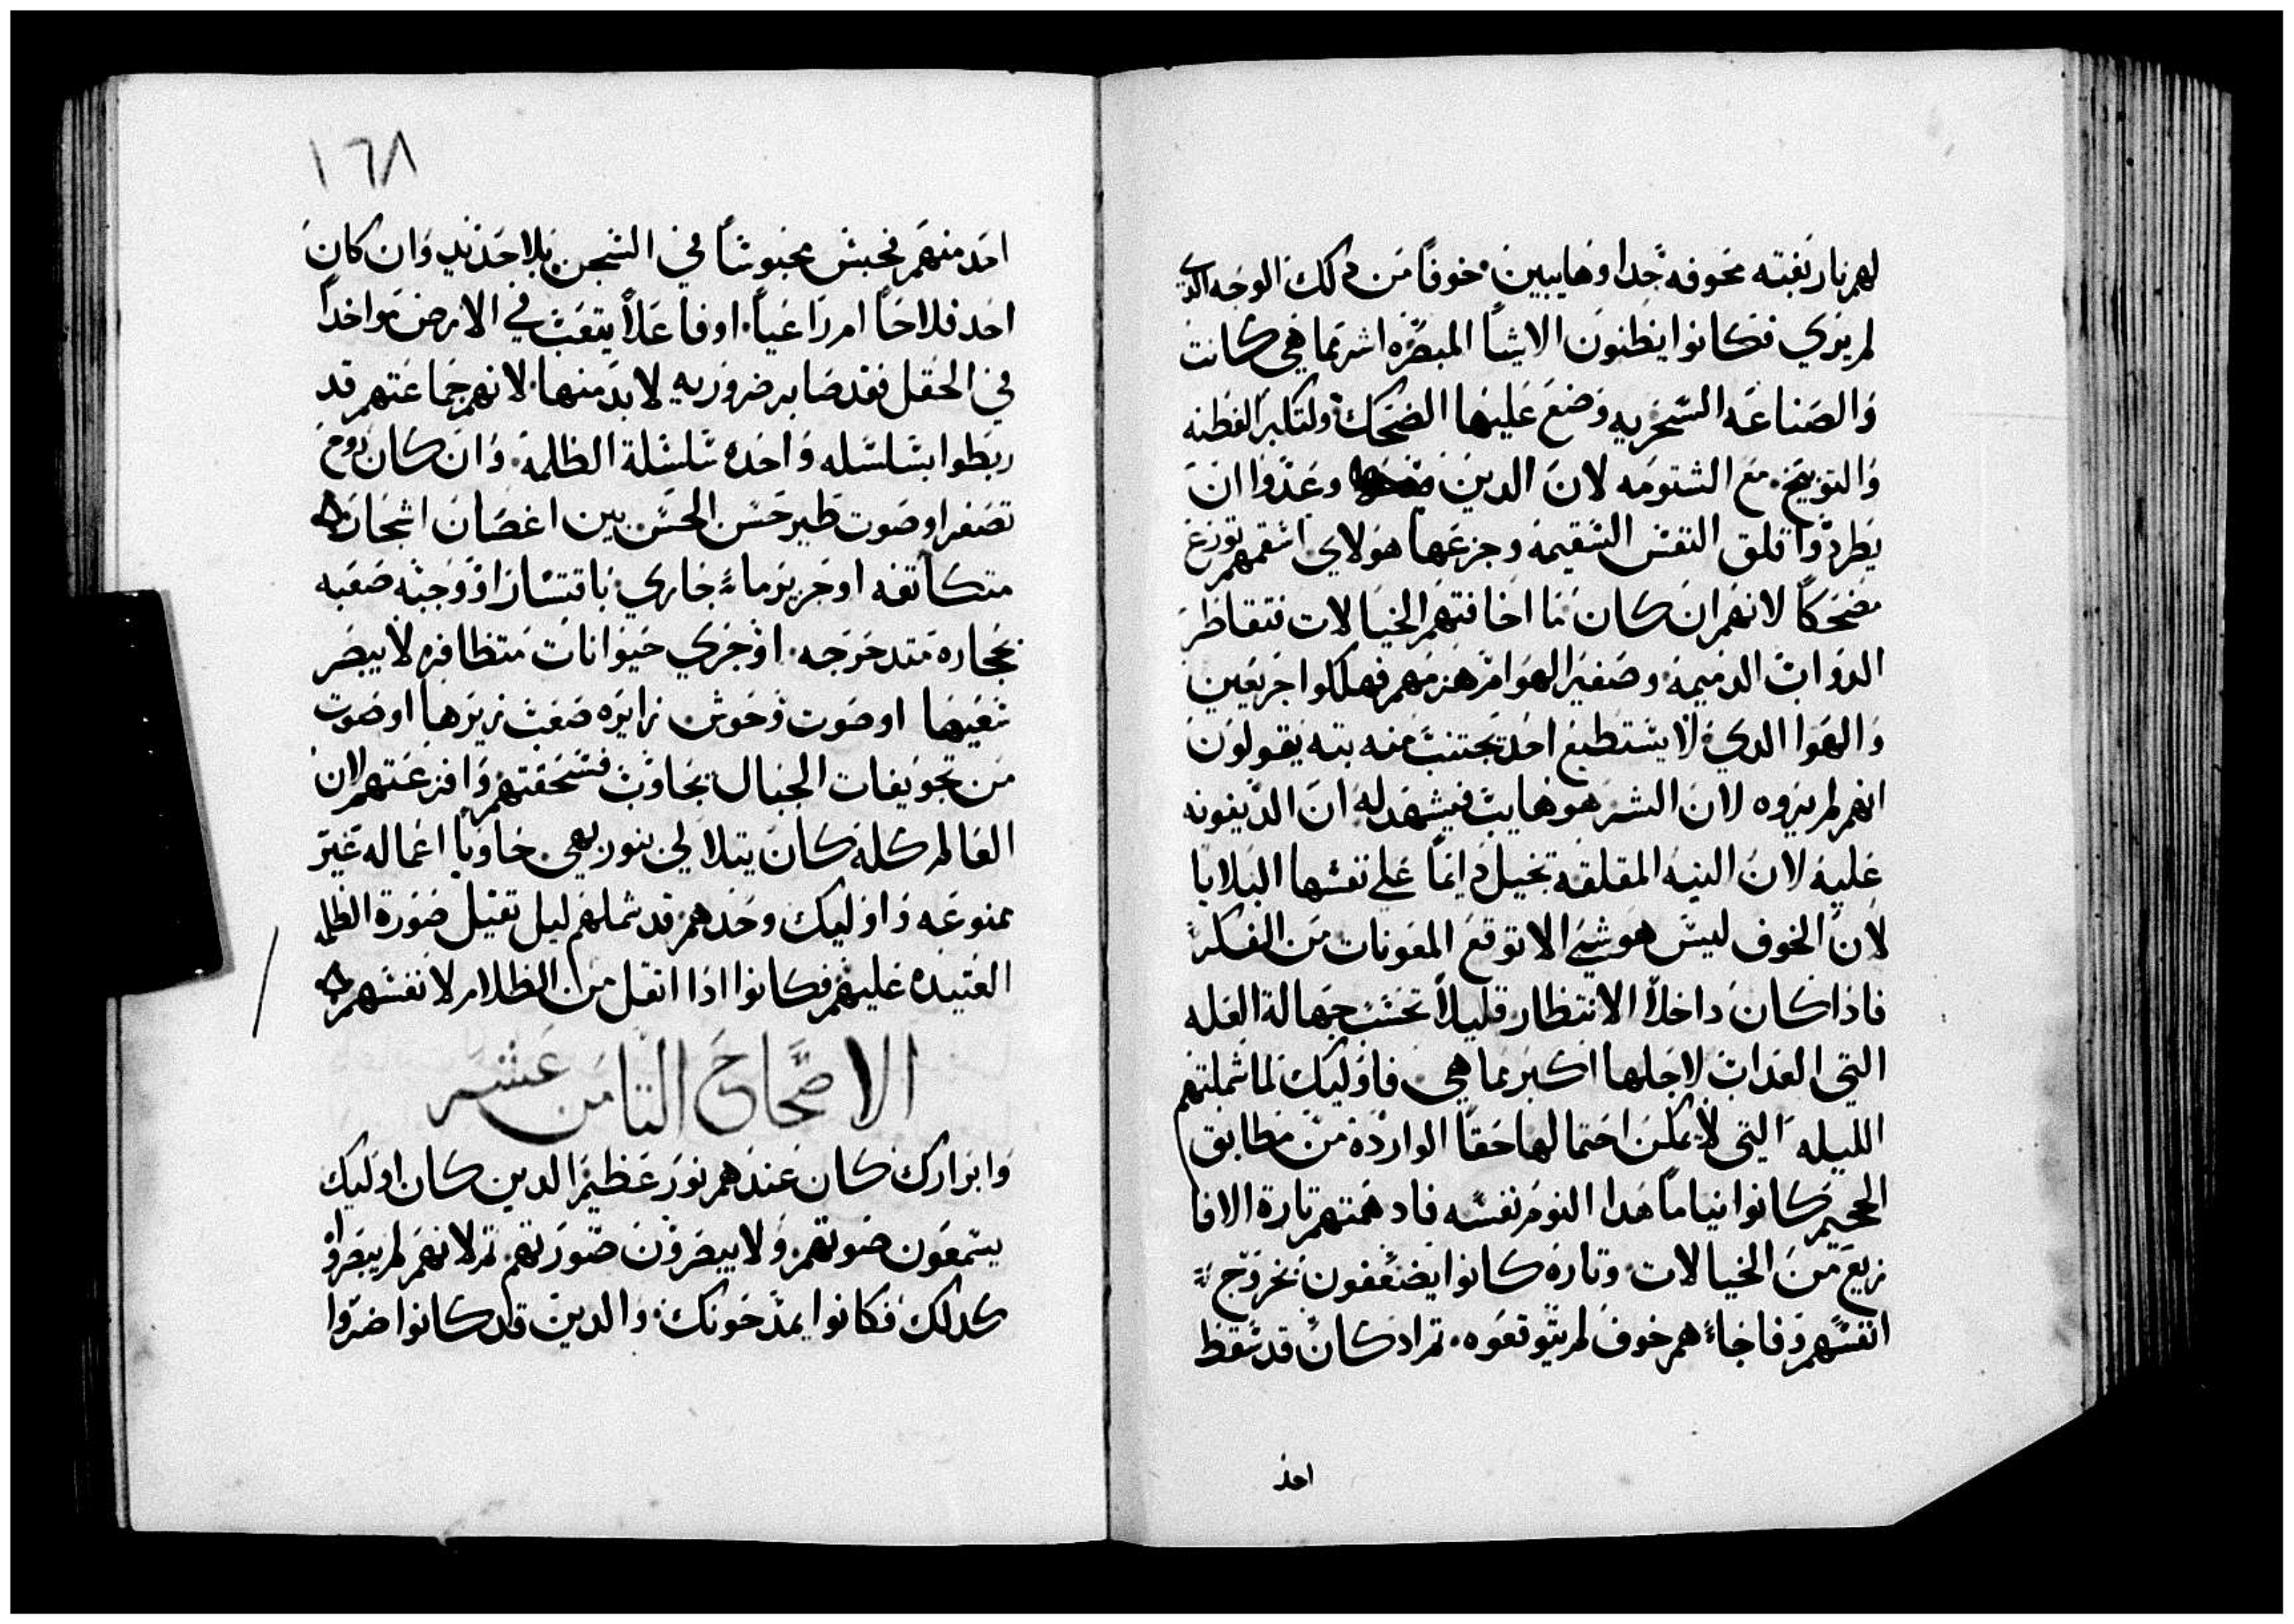 لهم نار بغته مخوفه جدا وهايبين خوفاً من دلك الوجه الدي
لم يري فكانوا يظنون الاشيا المبصره اشر مما هي كانت
والصناعه السحريه وضع عليها الضحك ولتكبر الفطنه
والتوبيخ مع الشتومه لان الدين وعدوا ان
يطردوا قلق النفس السقيمه وجزعها هولاي اسقمهم توزع
مضحكاً لانهم ان كان ما اخافتهم الخيالات فتقاطر
الدواب الدميمه وصفير الهوام هزمهم فهلكوا جزعين
والهوا الدي لا يستطيع احد يجتنب منه بته يقولون
انهم لم يروه لان الشر هو هايب فيشهد له ان الدينونه
عليه لان النيه المقلقه تخيل دايماً علي نفسها البلايا
لان الخوف ليس هو شي الا توقع المعونات من الفكر
فاذا كان داخلاً الانتظار قليلاً تحسب جهالة العله
التي العداب لاجلها اكبر مما هي فاوليك لما شملتهم
الليله التي لا يمكن احتمالها حقاً الواردة من مطابق
الجحيم كانوا نياماً هدا النوم نفسه فادهمتهم تارة الافا
زيع من الخيالات وتاره كانوا يضعفون بخروج
انفسهم وفاجاءهم خوف لم يتوقعوه ثم اد كان قد سقط
احد
١٦٨
احد منهم فحبس محبوساً في السجن بلا حديد وان كان
احد فلاحاً ام راعياً او فاعلاً يتعب في الارض مواخداً
في الحقل فقد صابر ضروريه لا بد منها لانهم جماعتهم قد
ربطوا بسلسله واحده سلسلة الظلمة وان كان روح
تصفر او صوت طير حسن الحس بين اغصان اشجار
متكاتفه او خرير ماء جاري باقتسار او وجبه صعبه
بحجاره متدحرجه او جري حيوانات متظافره لا يبصر
سعيها او صوت وحوش زايره صعب زيرها او صوت
من تجويفات الجبال تجاوب فسحقتهم وافزعتهم لان
العالم كله كان يتلالي بنور بهي حاوياً اعماله غير
ممنوعه واوليك وحدهم قد شملهم ليل تقيل صورة الظلمه
العتيده عليهم فكانوا اذا اتقل من الظلام لانفسهم
الاصحاح التامن عشر
وابرارك كان عندهم نور عظيم الدين كان اوليك
يسمعون صوتهم ولا يبصرون صورتهم تم لانهم لم يبصروا
كدلك فكانوا يمدحونك والدين قد كانوا ضروا